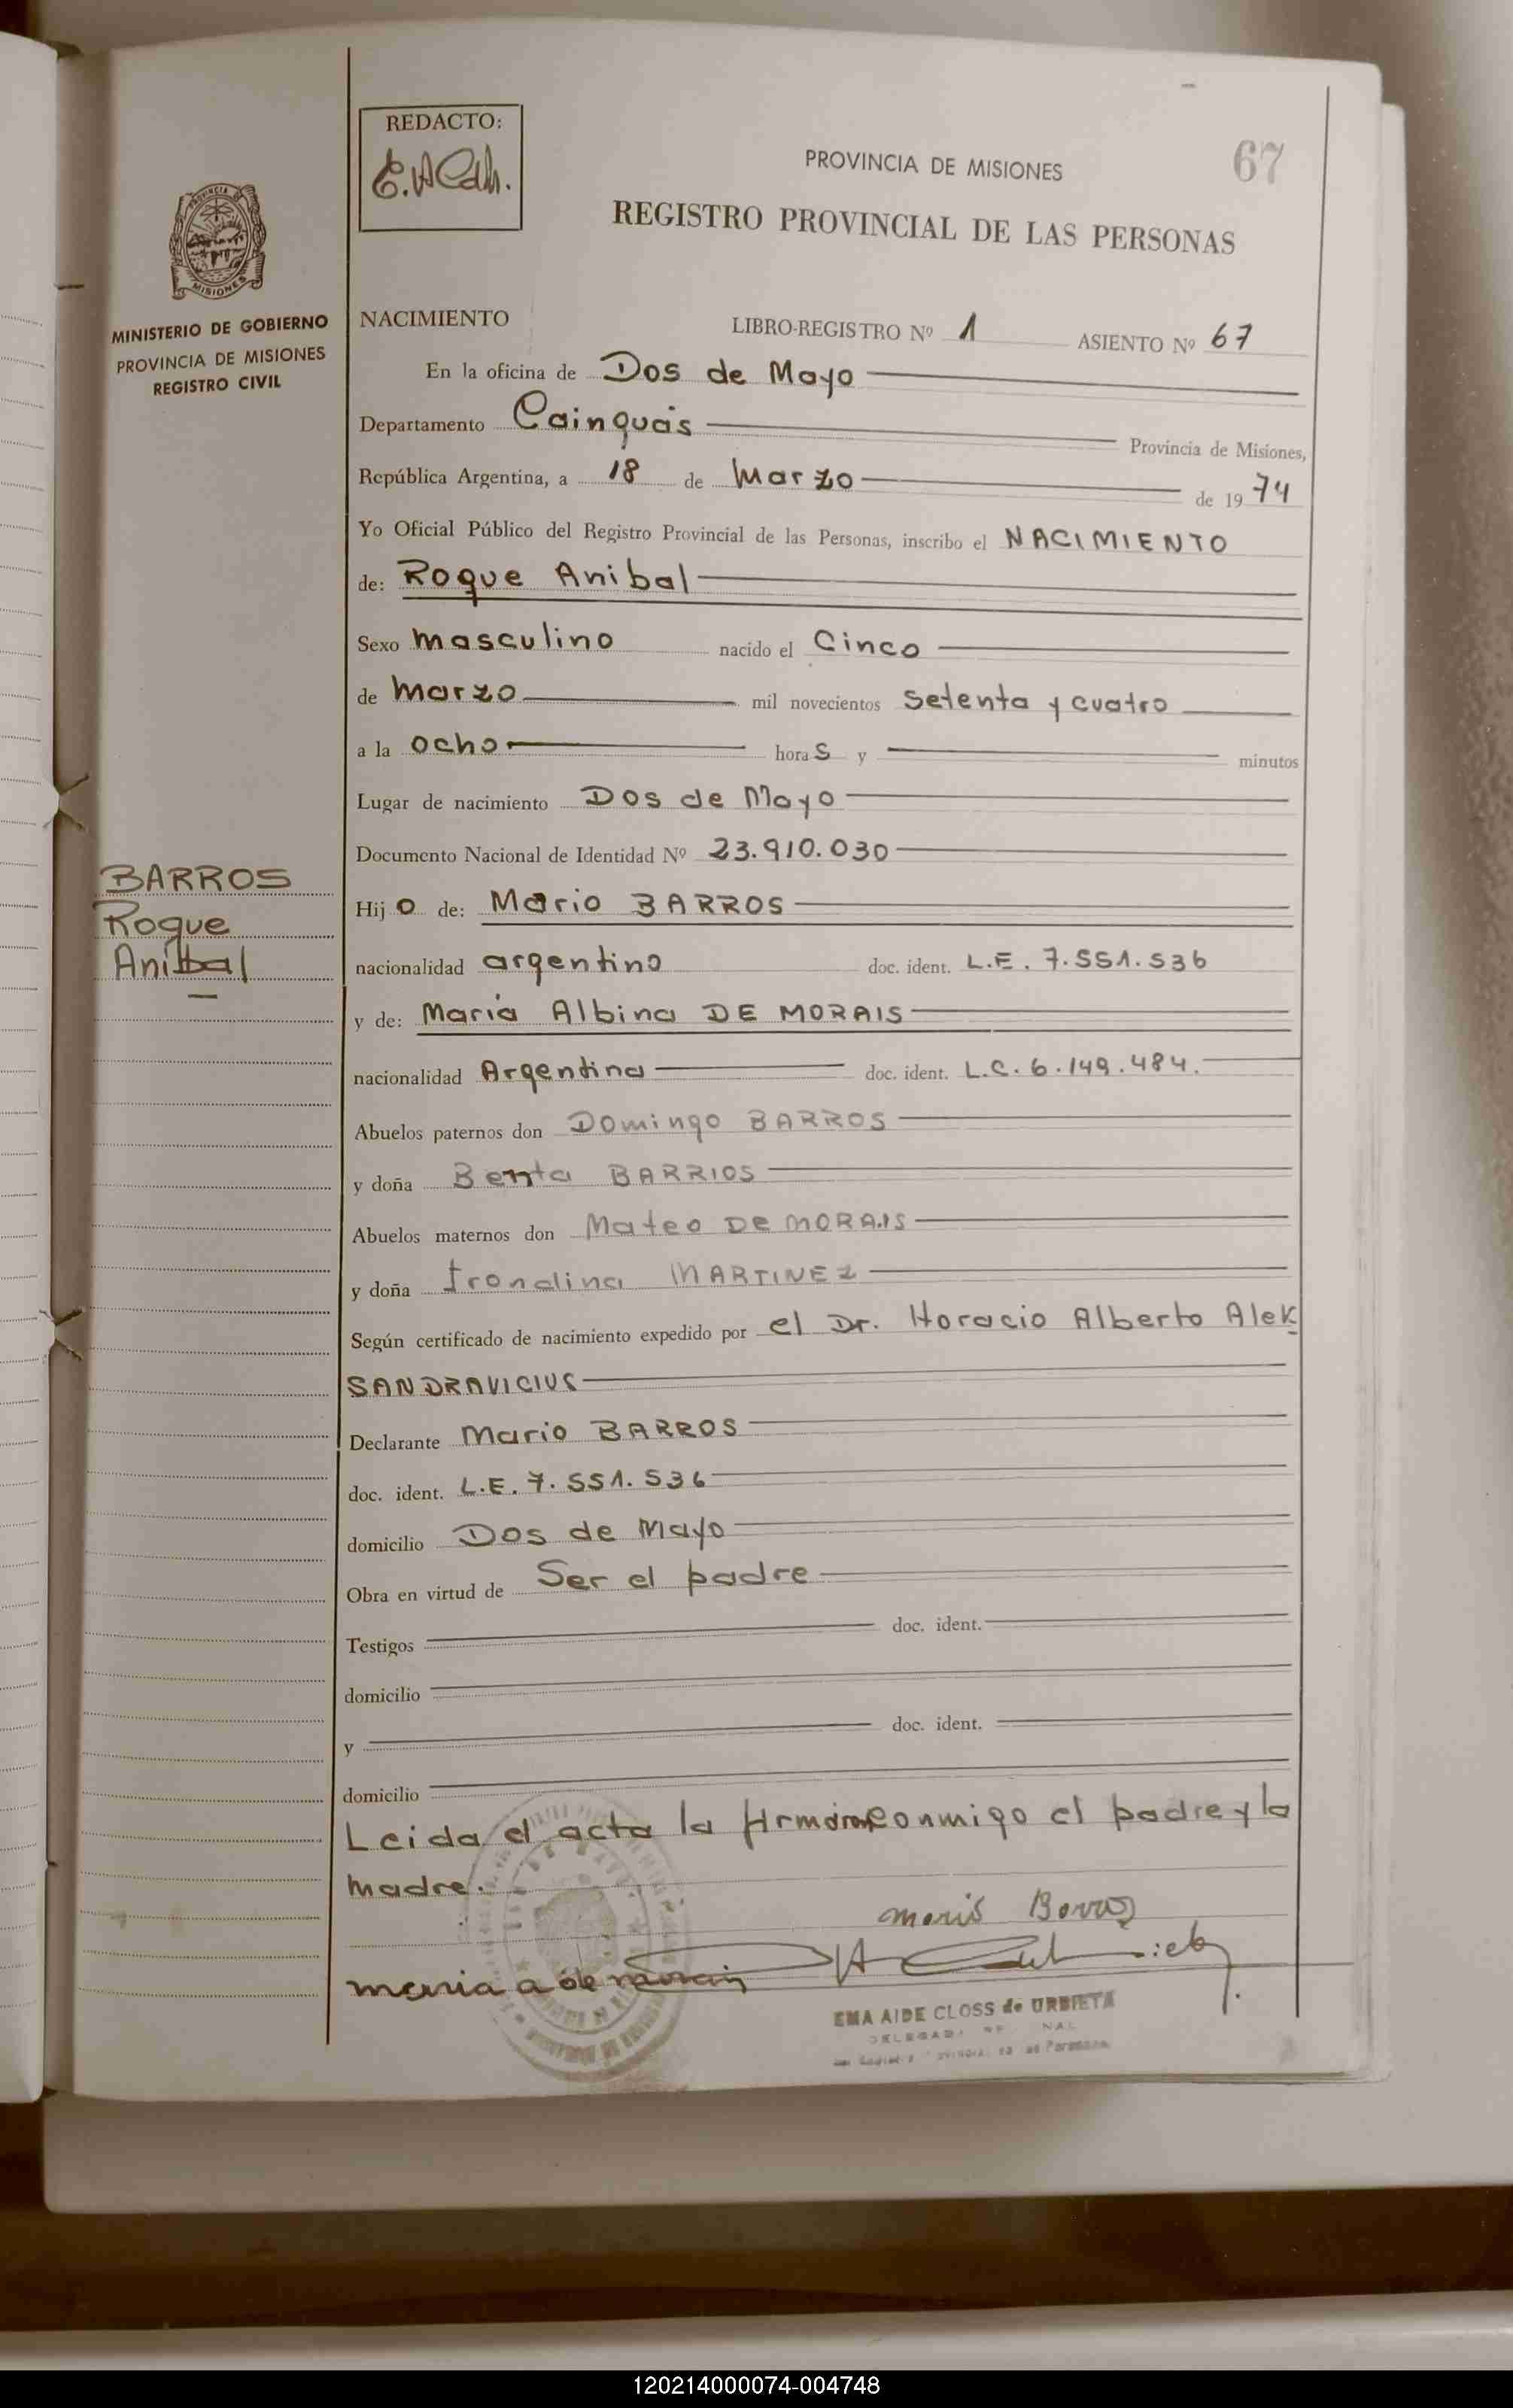 REDACTO:
PROVINCIA DE MISIONES
67
REGISTRO PROVINCIAL DE LAS PERSONAS
MISIONES
MINISTERIO DE GOBIERNO
PROVINCIA DE MISIONES
REGISTRO CIVIL
NACIMIENTO LIBRO-REGISTRO Nº 1 ASIENTO Nº 67
En la oficina de Dos de Mayo
Departamento Cainguás Provincia de Misiones,
República Argentina, a 18 de Marzo de 1974
Yo Oficial Público del Registro Provincial de las Personas, inscribo el NACIMIENTO
de: Roque Anibal
Sexo masculino nacido el Cinco
de Marzo mil novecientos setenta y cuatro
a la ocho horas y minutos
Lugar de nacimiento Dos de Mayo
Documento Nacional de Identidad Nº 23.910.030
BARROS
Roque
Anibal
Hijo de: Mario BARROS
nacionalidad argentino doc. ident. L.E. 7.551.536
y de: Maria Albina DE MORAIS
nacionalidad Argentina doc. ident. L.C. 6.149.484.
Abuelos paternos don Domingo BARROS
y doña Benta BARRIOS
Abuelos maternos don Mateo DE MORAIS
y doña Irondina MARTINEZ
Según certificado de nacimiento expedido por el Dr. Horacio Alberto Alek
SANDRAVICIUS
Declarante Mario BARROS
doc. ident. L.E. 7.551.536
domicilio Dos de Mayo
Obra en virtud de Ser el padre
Testigos doc. ident.
domicilio
y doc. ident.
domicilio
Leida el acta la firman conmigo el padre y la
madre.
Maria a de
EMA AIDE CLOSS de URBIETA
120214000074-004748